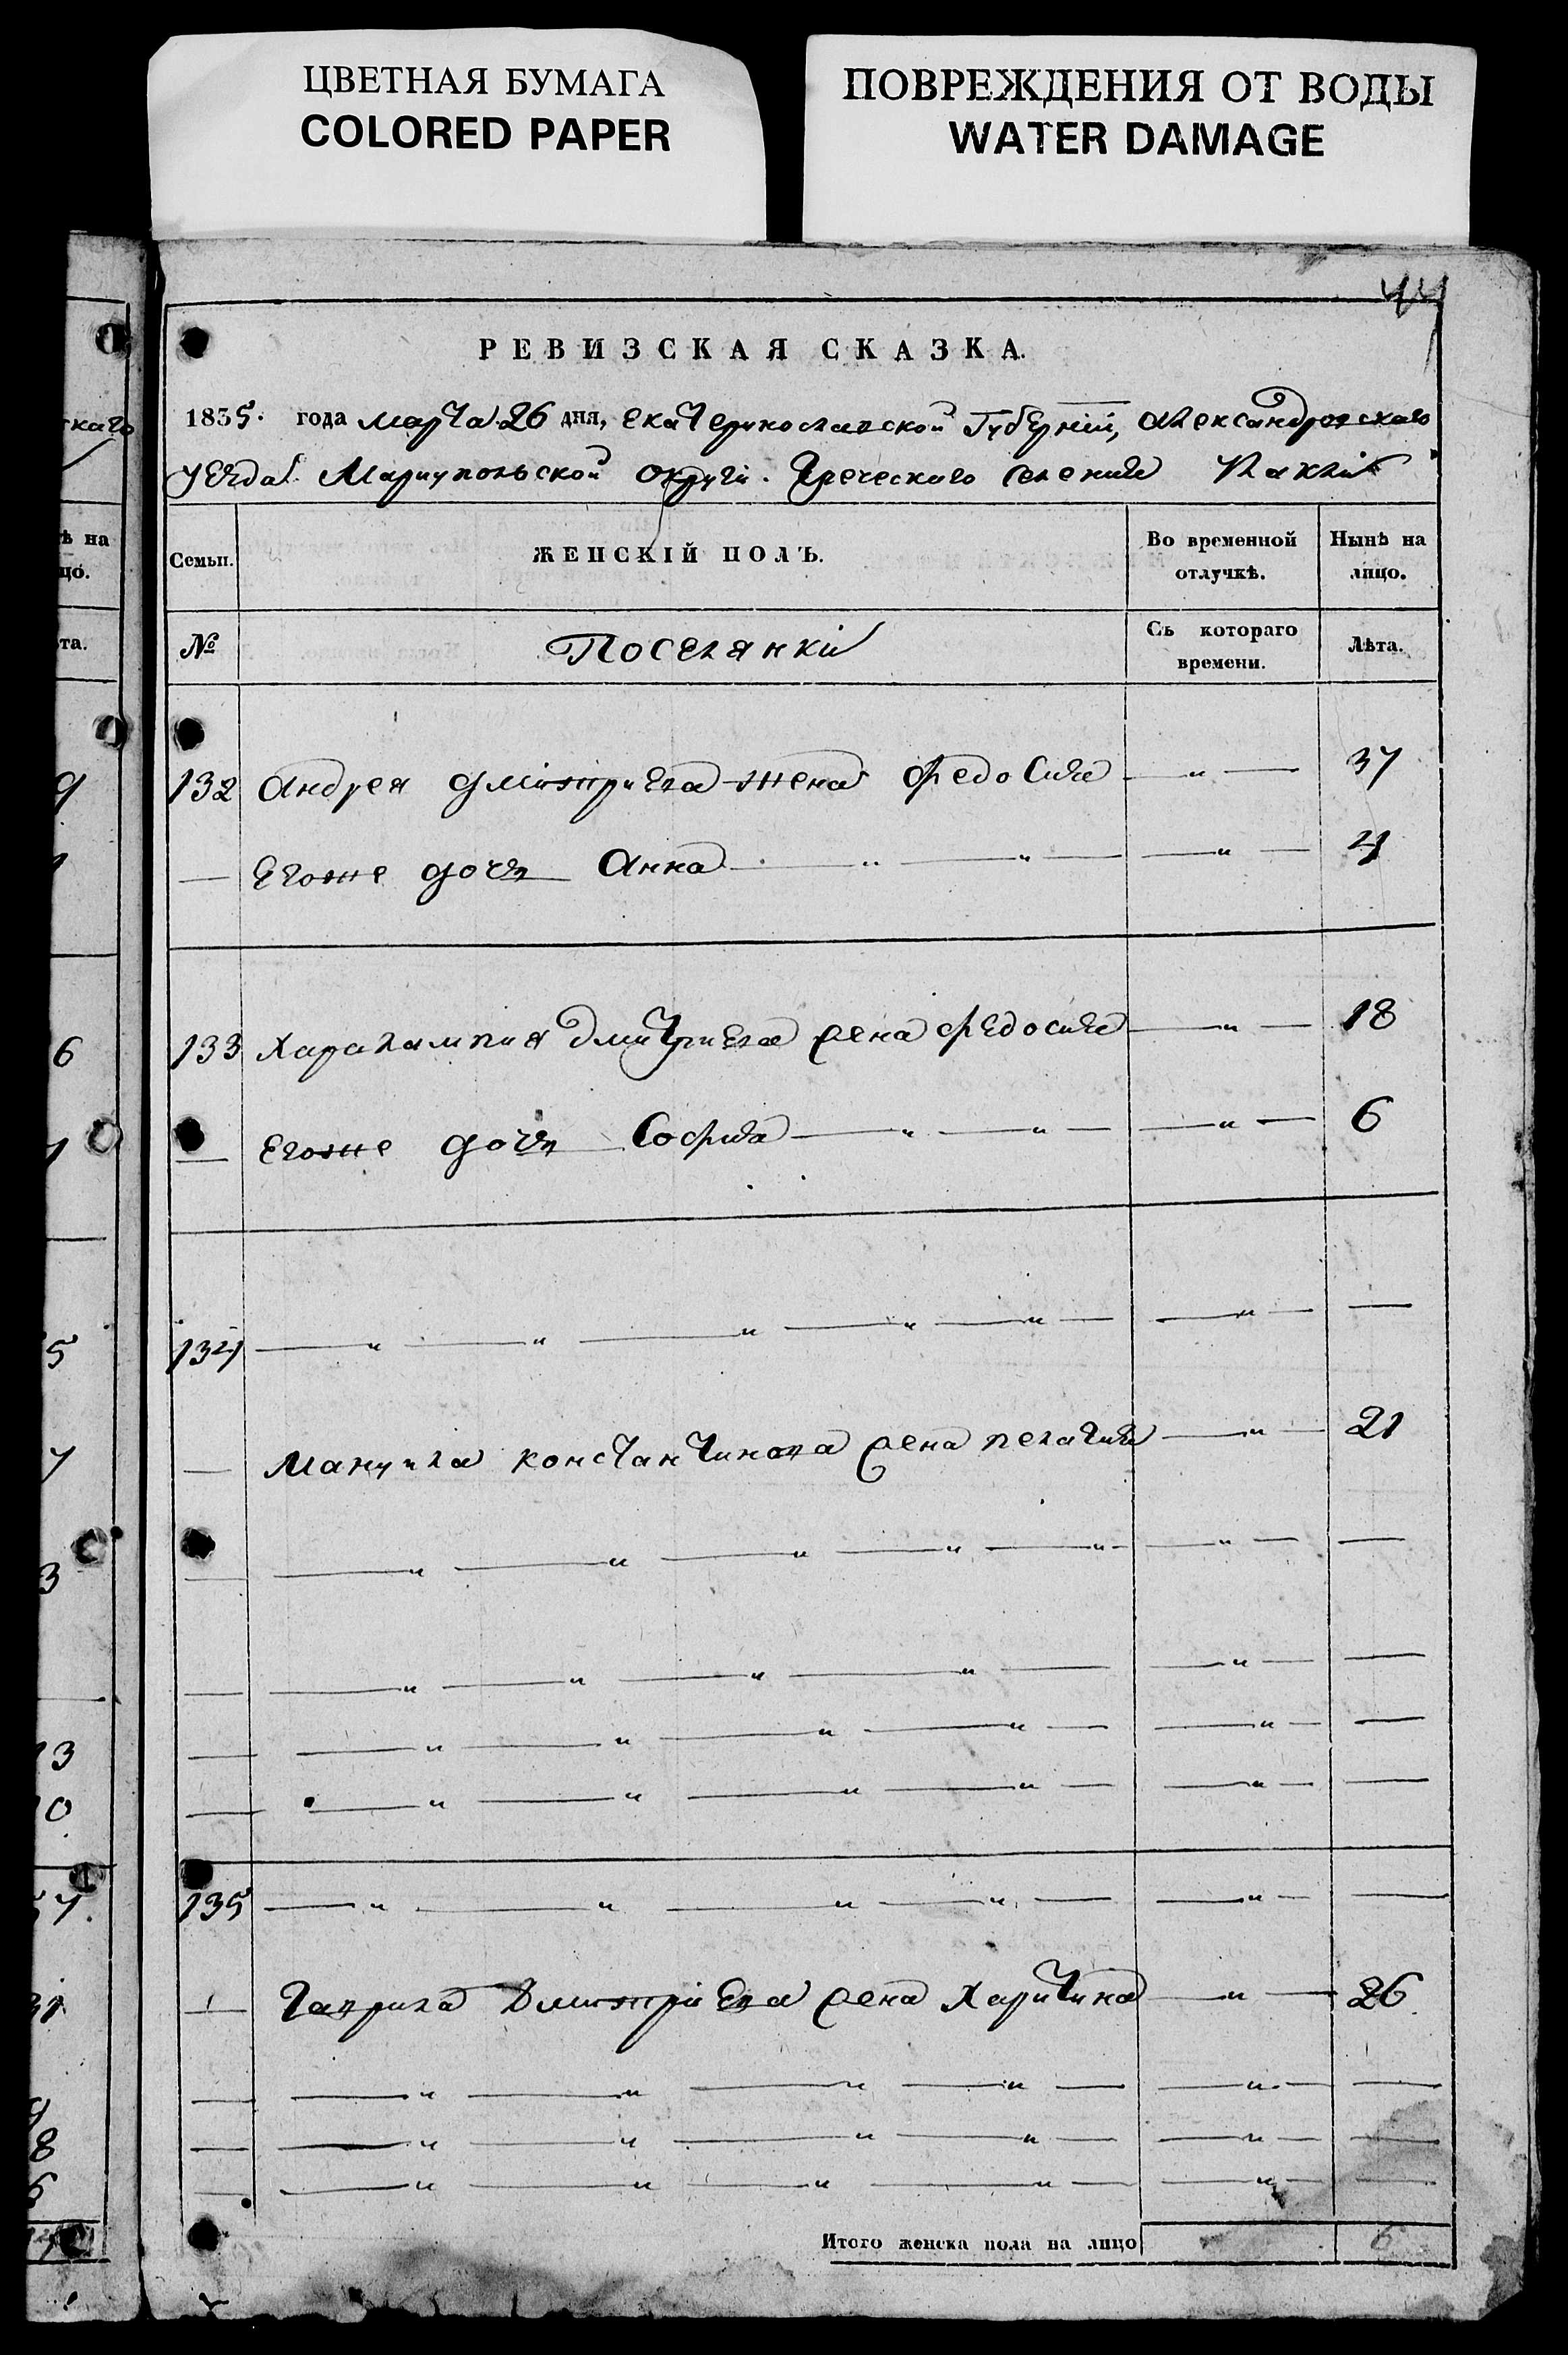 ЦВЕТНАЯ БУМАГА
COLORED PAPER
ПОВРЕЖДЕНИЯ ОТ ВОДЫ
WATER DAMAGE
44
РЕВИЗСКАЯ СКАЗКА.
1835. года марта 26 дня, екатеринославской Губерніи, александровскаго
уезда Мариупольской округи. Греческаго селения
Семьи. ЖЕНСКІЙ ПОЛЪ. Во временной отлучкѣ. Нынѣ на лицо.
№ Поселянки Съ котораго времени. Лѣта.
132 Андрея дмитриева жена федосия — " — 37
— Егоже дочь Анна — " — " — — " — 4
133 Харалампия Дмитриева жена федосия — " — 18
— Егоже дочь София — " — " — — " — 6
134 — " — " — " — " — " — — " — —
— Мануила константинова жена пелагия — " — 21
— — " — " — " — " — " — — " — —
— — " — " — " — " — — " — —
— — " — " — " — " — — " — —
— — " — " — " — " — — " — —
135 — " — " — " — " — — " — —
— Гаврила Дмитриева жена Харитина — " — 26
— — " — " — " — " — — " — —
— — " — " — " — " — — " — —
— — " — " — " — " — — " — —
Итого женска пола на лицо 6